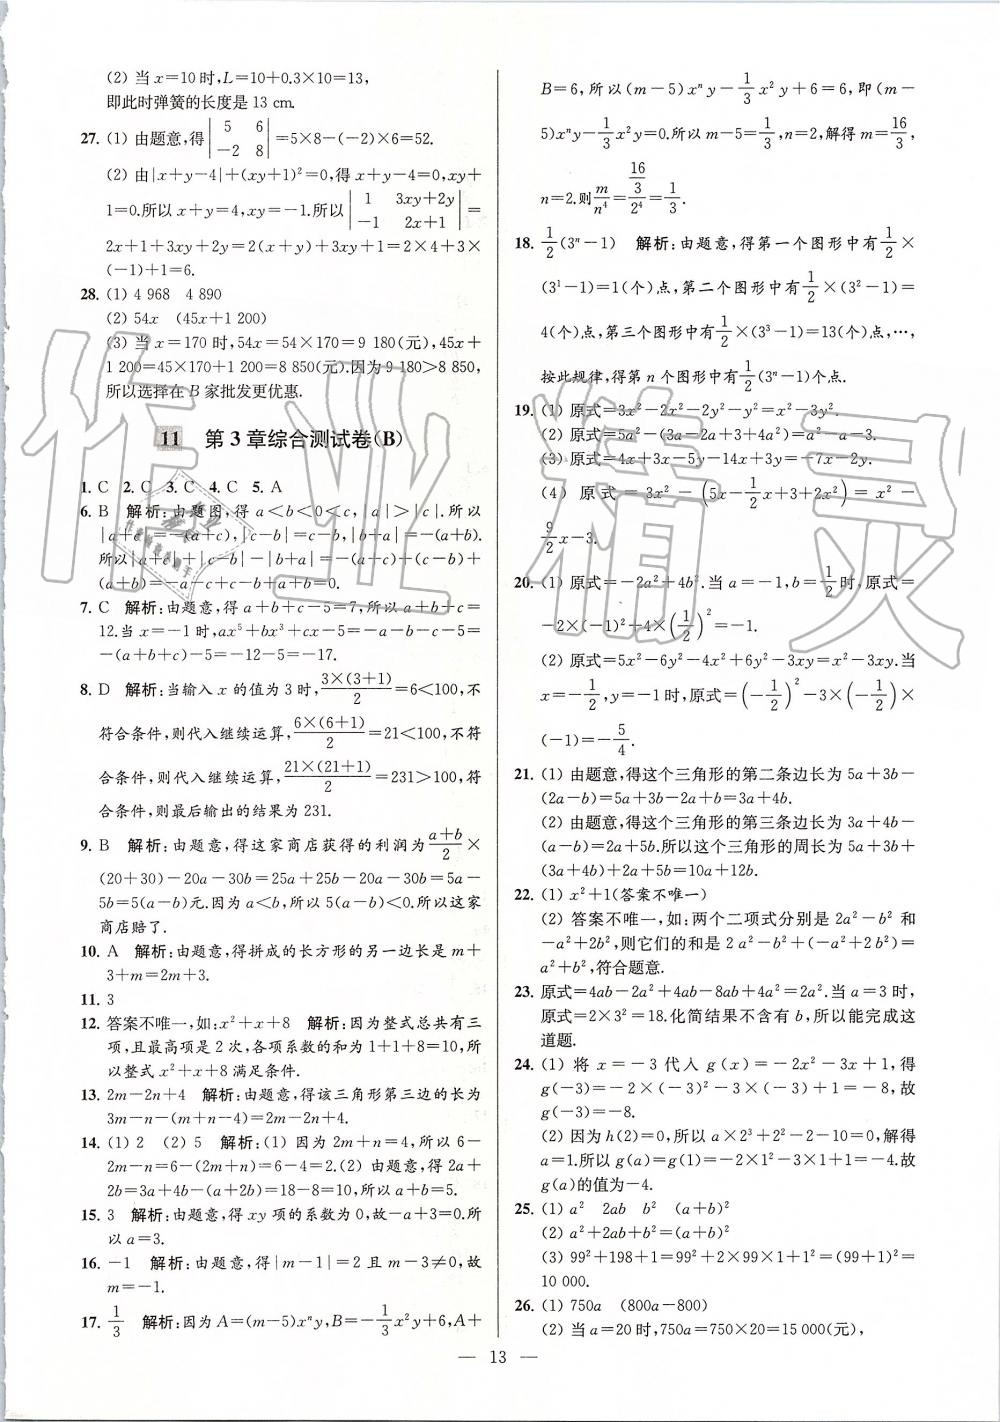 (2) 当 x=10 时,L=10+0.3×10=13,
即此时弹簧的长度是 13 cm.
27. (1) 由题意,得 |5 6; −2 8| =5×8−(−2)×6=52.
(2) 由|x+y−4|+(xy+1)²=0,得 x+y−4=0,xy+
1=0.所以 x+y=4,xy=−1.所以 |1 3xy+2y; −1 2x+1| =
2x+1+3xy+2y=2(x+y)+3xy+1=2×4+3×
(−1)+1=6.
28. (1) 4 968 4 890
(2) 54x (45x+1 200)
(3) 当 x=170 时,54x=54×170=9 180(元),45x+
1 200=45×170+1 200=8 850(元).因为 9 180>8 850,
所以选择在 B 家批发更优惠.
11 第 3 章综合测试卷(B)
1. C 2. C 3. C 4. C 5. A
6. B 解析:由题图,得 a<b<0<c,|a|>|c|.所以
|a+c|=−(a+c),|c−b|=c−b,|b+a|=−(a+b).
所以|a+c|+|c−b|−|b+a|=−(a+c)+(c−b)+
(a+b)=−a−c+c−b+a+b=0.
7. C 解析:由题意,得 a+b+c−5=7,所以 a+b+c=
12.当 x=−1 时,ax⁵+bx³+cx−5=−a−b−c−5=
−(a+b+c)−5=−12−5=−17.
8. D 解析:当输入 x 的值为 3 时,3×(3+1)/2=6<100,不
符合条件,则代入继续运算,6×(6+1)/2=21<100,不符
合条件,则代入继续运算,21×(21+1)/2=231>100,符
合条件,则最后输出的结果为 231.
9. B 解析:由题意,得这家商店获得的利润为(a+b)/2×
(20+30)−20a−30b=25a+25b−20a−30b=5a−
5b=5(a−b)元.因为 a<b,所以 5(a−b)<0.所以这家
商店赔了.
10. A 解析:由题意,得拼成的长方形的另一边长是 m+
3+m=2m+3.
11. 3
12. 答案不唯一,如:x²+x+8 解析:因为整式总共有三
项,且最高项是 2 次,各项系数的和为 1+1+8=10,所
以整式 x²+x+8 满足条件.
13. 2m−2n+4 解析:由题意,得该三角形第三边的长为
3m−n−(m+n−4)=2m−2n+4.
14. (1) 2 (2) 5 解析:(1) 因为 2m+n=4,所以 6−
2m−n=6−(2m+n)=6−4=2.(2) 由题意,得 2a+
2b=3a+4b−(a+2b)=18−8=10,所以 a+b=5.
15. 3 解析:由题意,得 xy 项的系数为 0,故−a+3=0.所
以 a=3.
16. −1 解析:由题意,得|m−1|=2 且 m−3≠0,故
m=−1.
17. 1/3 解析:因为 A=(m−5)xⁿy,B=−1/3x²y+6,A+
B=6,所以(m−5)xⁿy−1/3x²y+6=6,即(m−
5)xⁿy−1/3x²y=0.所以 m−5=1/3,n=2,解得 m=16/3,
n=2.则m/n⁴=(16/3)/2⁴=1/3.
18. 1/2(3ⁿ−1) 解析:由题意,得第一个图形中有1/2×
(3¹−1)=1(个)点,第二个图形中有1/2×(3²−1)=
4(个)点,第三个图形中有1/2×(3³−1)=13(个)点,…,
按此规律,得第 n 个图形中有1/2(3ⁿ−1)个点.
19. (1) 原式=3x²−2x²−2y²−y²=x²−3y².
(2) 原式=5a²−(3a−2a+3+4a²)=a²−a−3.
(3) 原式=4x+3x−5y−14x+3y=−7x−2y.
(4) 原式=3x²−(5x−1/2x+3+2x²)=x²−
9/2x−3.
20. (1) 原式=−2a²+4b².当 a=−1,b=1/2时,原式=
−2×(−1)²+4×(1/2)²=−1.
(2) 原式=5x²−6y²−4x²+6y²−3xy=x²−3xy.当
x=−1/2,y=−1 时,原式=(−1/2)²−3×(−1/2)×
(−1)=−5/4.
21. (1) 由题意,得这个三角形的第二条边长为 5a+3b−
(2a−b)=5a+3b−2a+b=3a+4b.
(2) 由题意,得这个三角形的第三条边长为 3a+4b−
(a−b)=2a+5b.所以这个三角形的周长为 5a+3b+
(3a+4b)+2a+5b=10a+12b.
22. (1) x²+1(答案不唯一)
(2) 答案不唯一,如:两个二项式分别是 2a²−b² 和
−a²+2b²,则它们的和是 2a²−b²+(−a²+2b²)=
a²+b²,符合题意.
23. 原式=4ab−2a²+4ab−8ab+4a²=2a².当 a=3 时,
原式=2×3²=18.化简结果不含有 b,所以能完成这
道题.
24. (1) 将 x=−3 代入 g(x)=−2x²−3x+1,得
g(−3)=−2×(−3)²−3×(−3)+1=−8,故
g(−3)=−8.
(2) 因为 h(2)=0,所以 a×2³+2²−2−10=0,解得
a=1.所以 g(a)=g(1)=−2×1²−3×1+1=−4.故
g(a)的值为−4.
25. (1) a² 2ab b² (a+b)²
(2) a²+2ab+b²=(a+b)²
(3) 99²+198+1=99²+2×99×1+1²=(99+1)²=
10 000.
26. (1) 750a (800a−800)
(2) 当 a=20 时,750a=750×20=15 000(元),
— 13 —
作业精灵